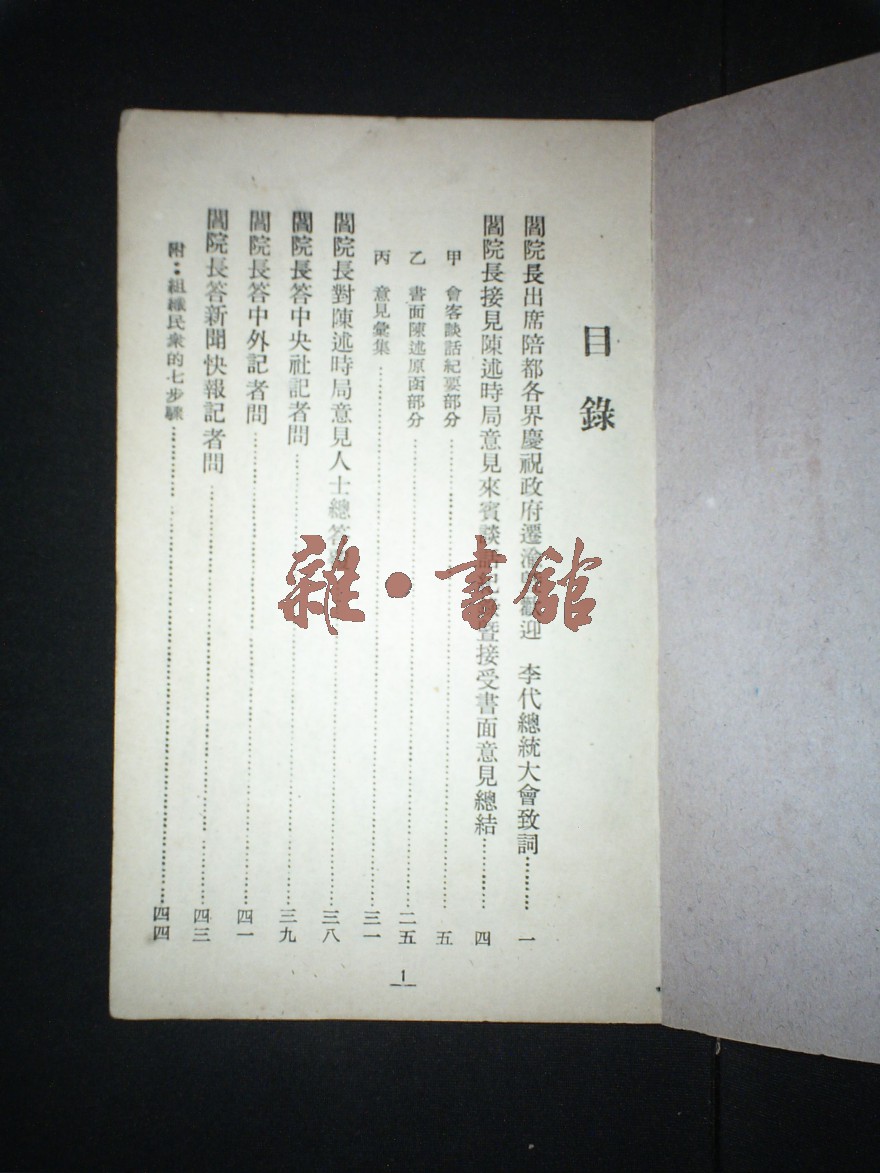 目錄
閻院長出席陪都各界慶祝政府遷渝 歡迎 李代總統大會致詞…………一
閻院長接見陳述時局意見來賓談話紀 暨接受書面意見總結…………四
甲 會客談話紀要部分…………五
乙 書面陳述原函部分…………二五
丙 意見彙集…………三一
閻院長對陳述時局意見人士總答 …………三八
閻院長答中央社記者問…………三九
閻院長答中外記者問…………四一
閻院長答新聞快報記者問…………四三
附：組織民衆的七步驟…………四四
1
雜·書館